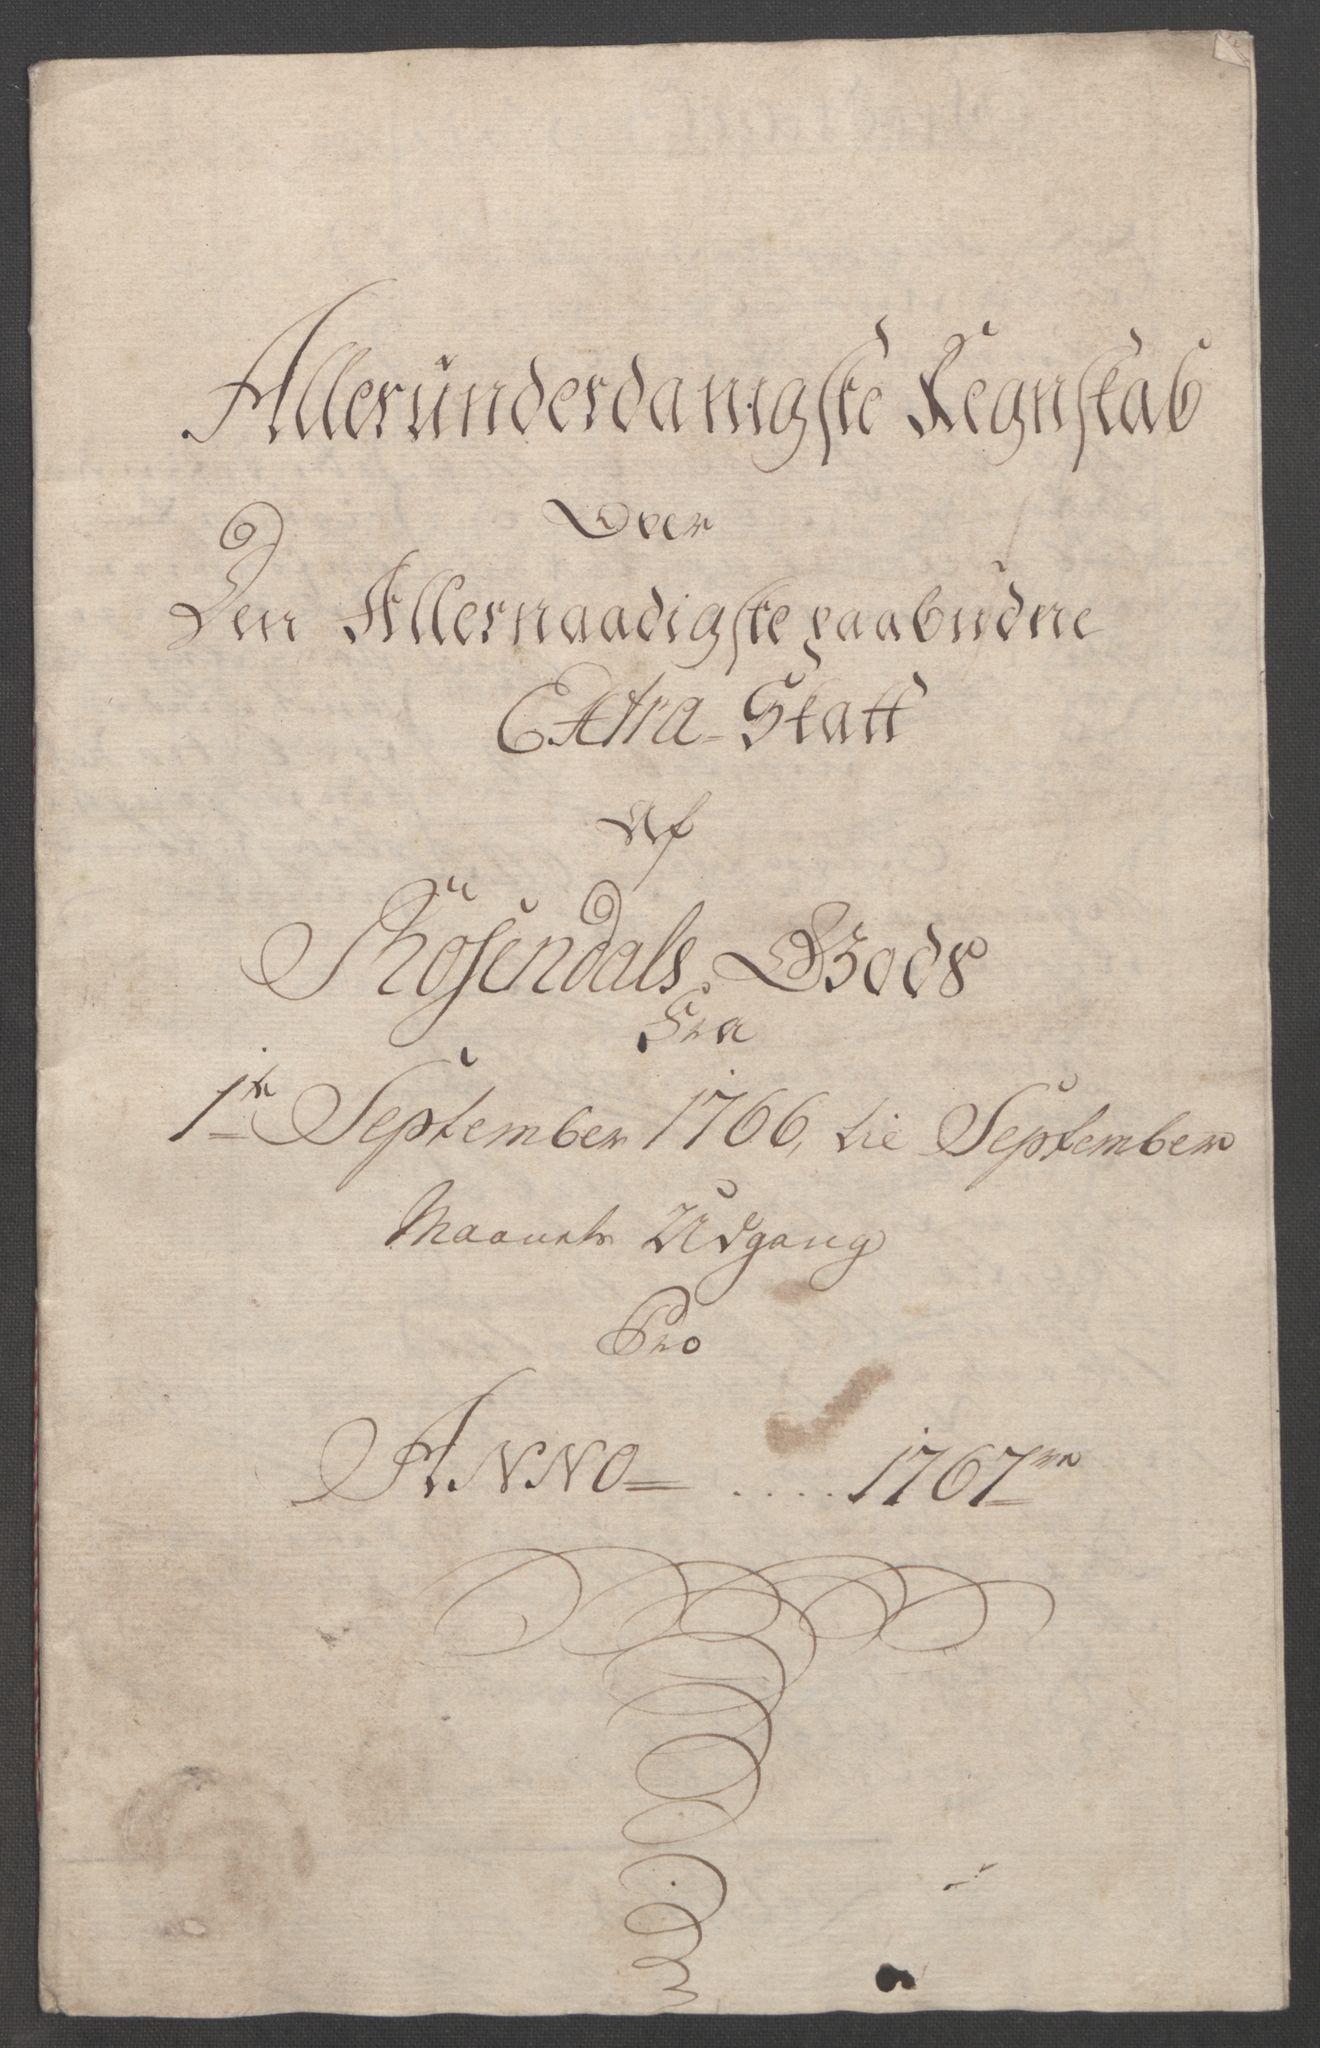 Alleründerdanigste Regnskab
Over
Den Allernaadigste paabudne
Extra-Skatt
Af
Rosendals Gods
Fra
1te September 1766, til September
Maanets Udgang
Pro
ANNO = .... 1767